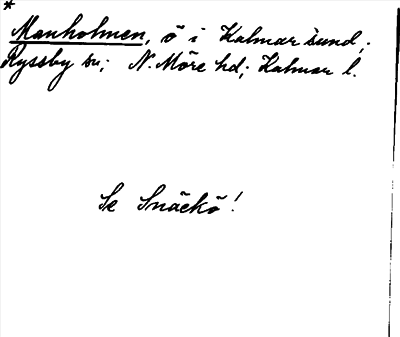 *
Manholmen, ö i Kalmar sund,
Ryssby sn; N. Möre hd; Kalmar l.
Se Snäckö!